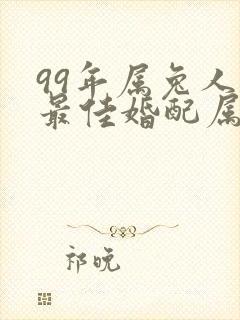 99年属兔人
最佳婚配属
祁晚